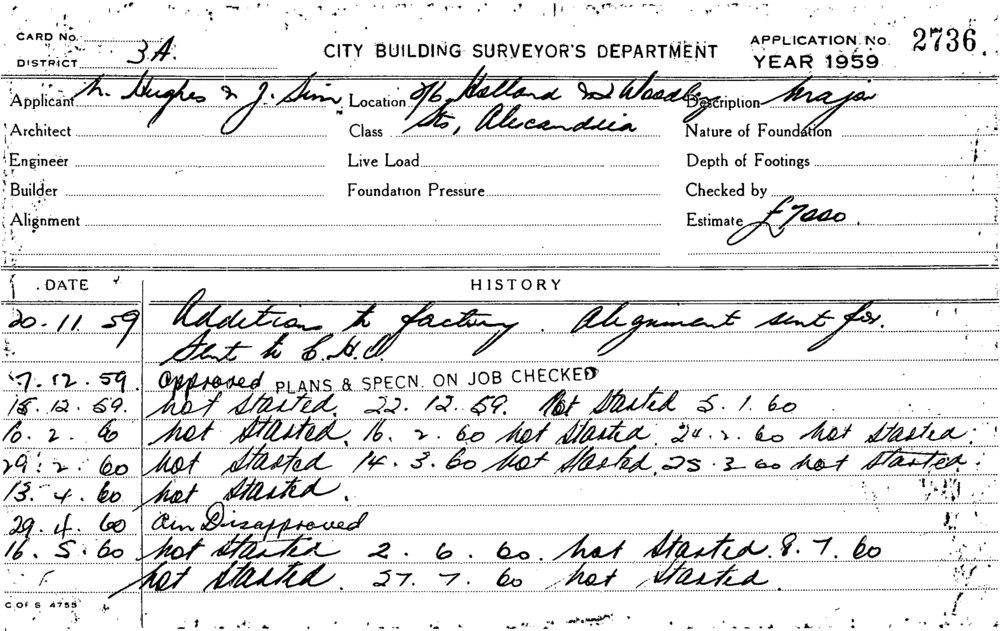 CARD No.
DISTRICT 3A.
CITY BUILDING SURVEYOR'S DEPARTMENT
APPLICATION No. 2736
YEAR 1959
Applicant N. Hughes & J. Sim Location Holland & Woodley Description Major
Architect Class Sts, Alexandria Nature of Foundation
Engineer Live Load Depth of Footings
Builder Foundation Pressure Checked by
Alignment Estimate £7000.
DATE HISTORY
20.11.59 Additions to factory. Alignment sent for.
Sent to C.H.O.
7.12.59. approved PLANS & SPECN. ON JOB CHECKED
15.12.59. not started. 22.12.59. Not started 5.1.60
10.2.60 not started. 16.2.60 not started. 24.2.60 not started.
29.2.60 not started 14.3.60 not started. 25.3.60 not started.
13.4.60 not started.
29.4.60 Disapproved
16.5.60 not started 2.6.60. not started. 8.7.60
not started. 27.7.60 not started.
C OF S 4755